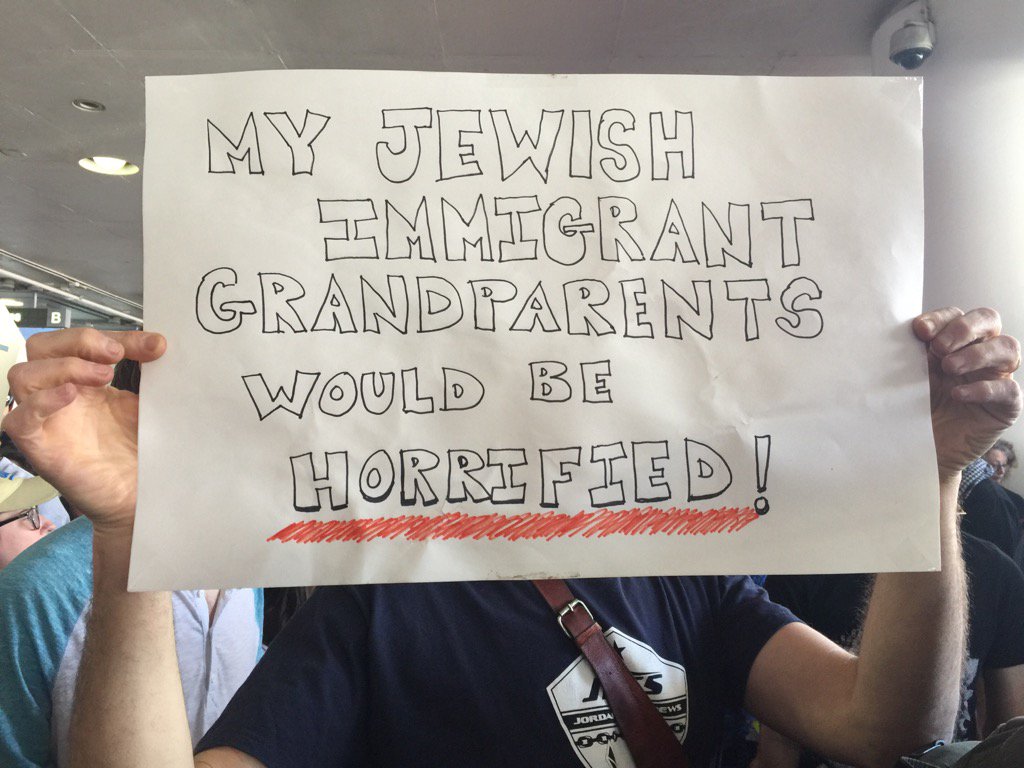 MY JEWISH
IMMIGRANT
GRANDPARENTS
WOULD BE
HORRIFIED!
B